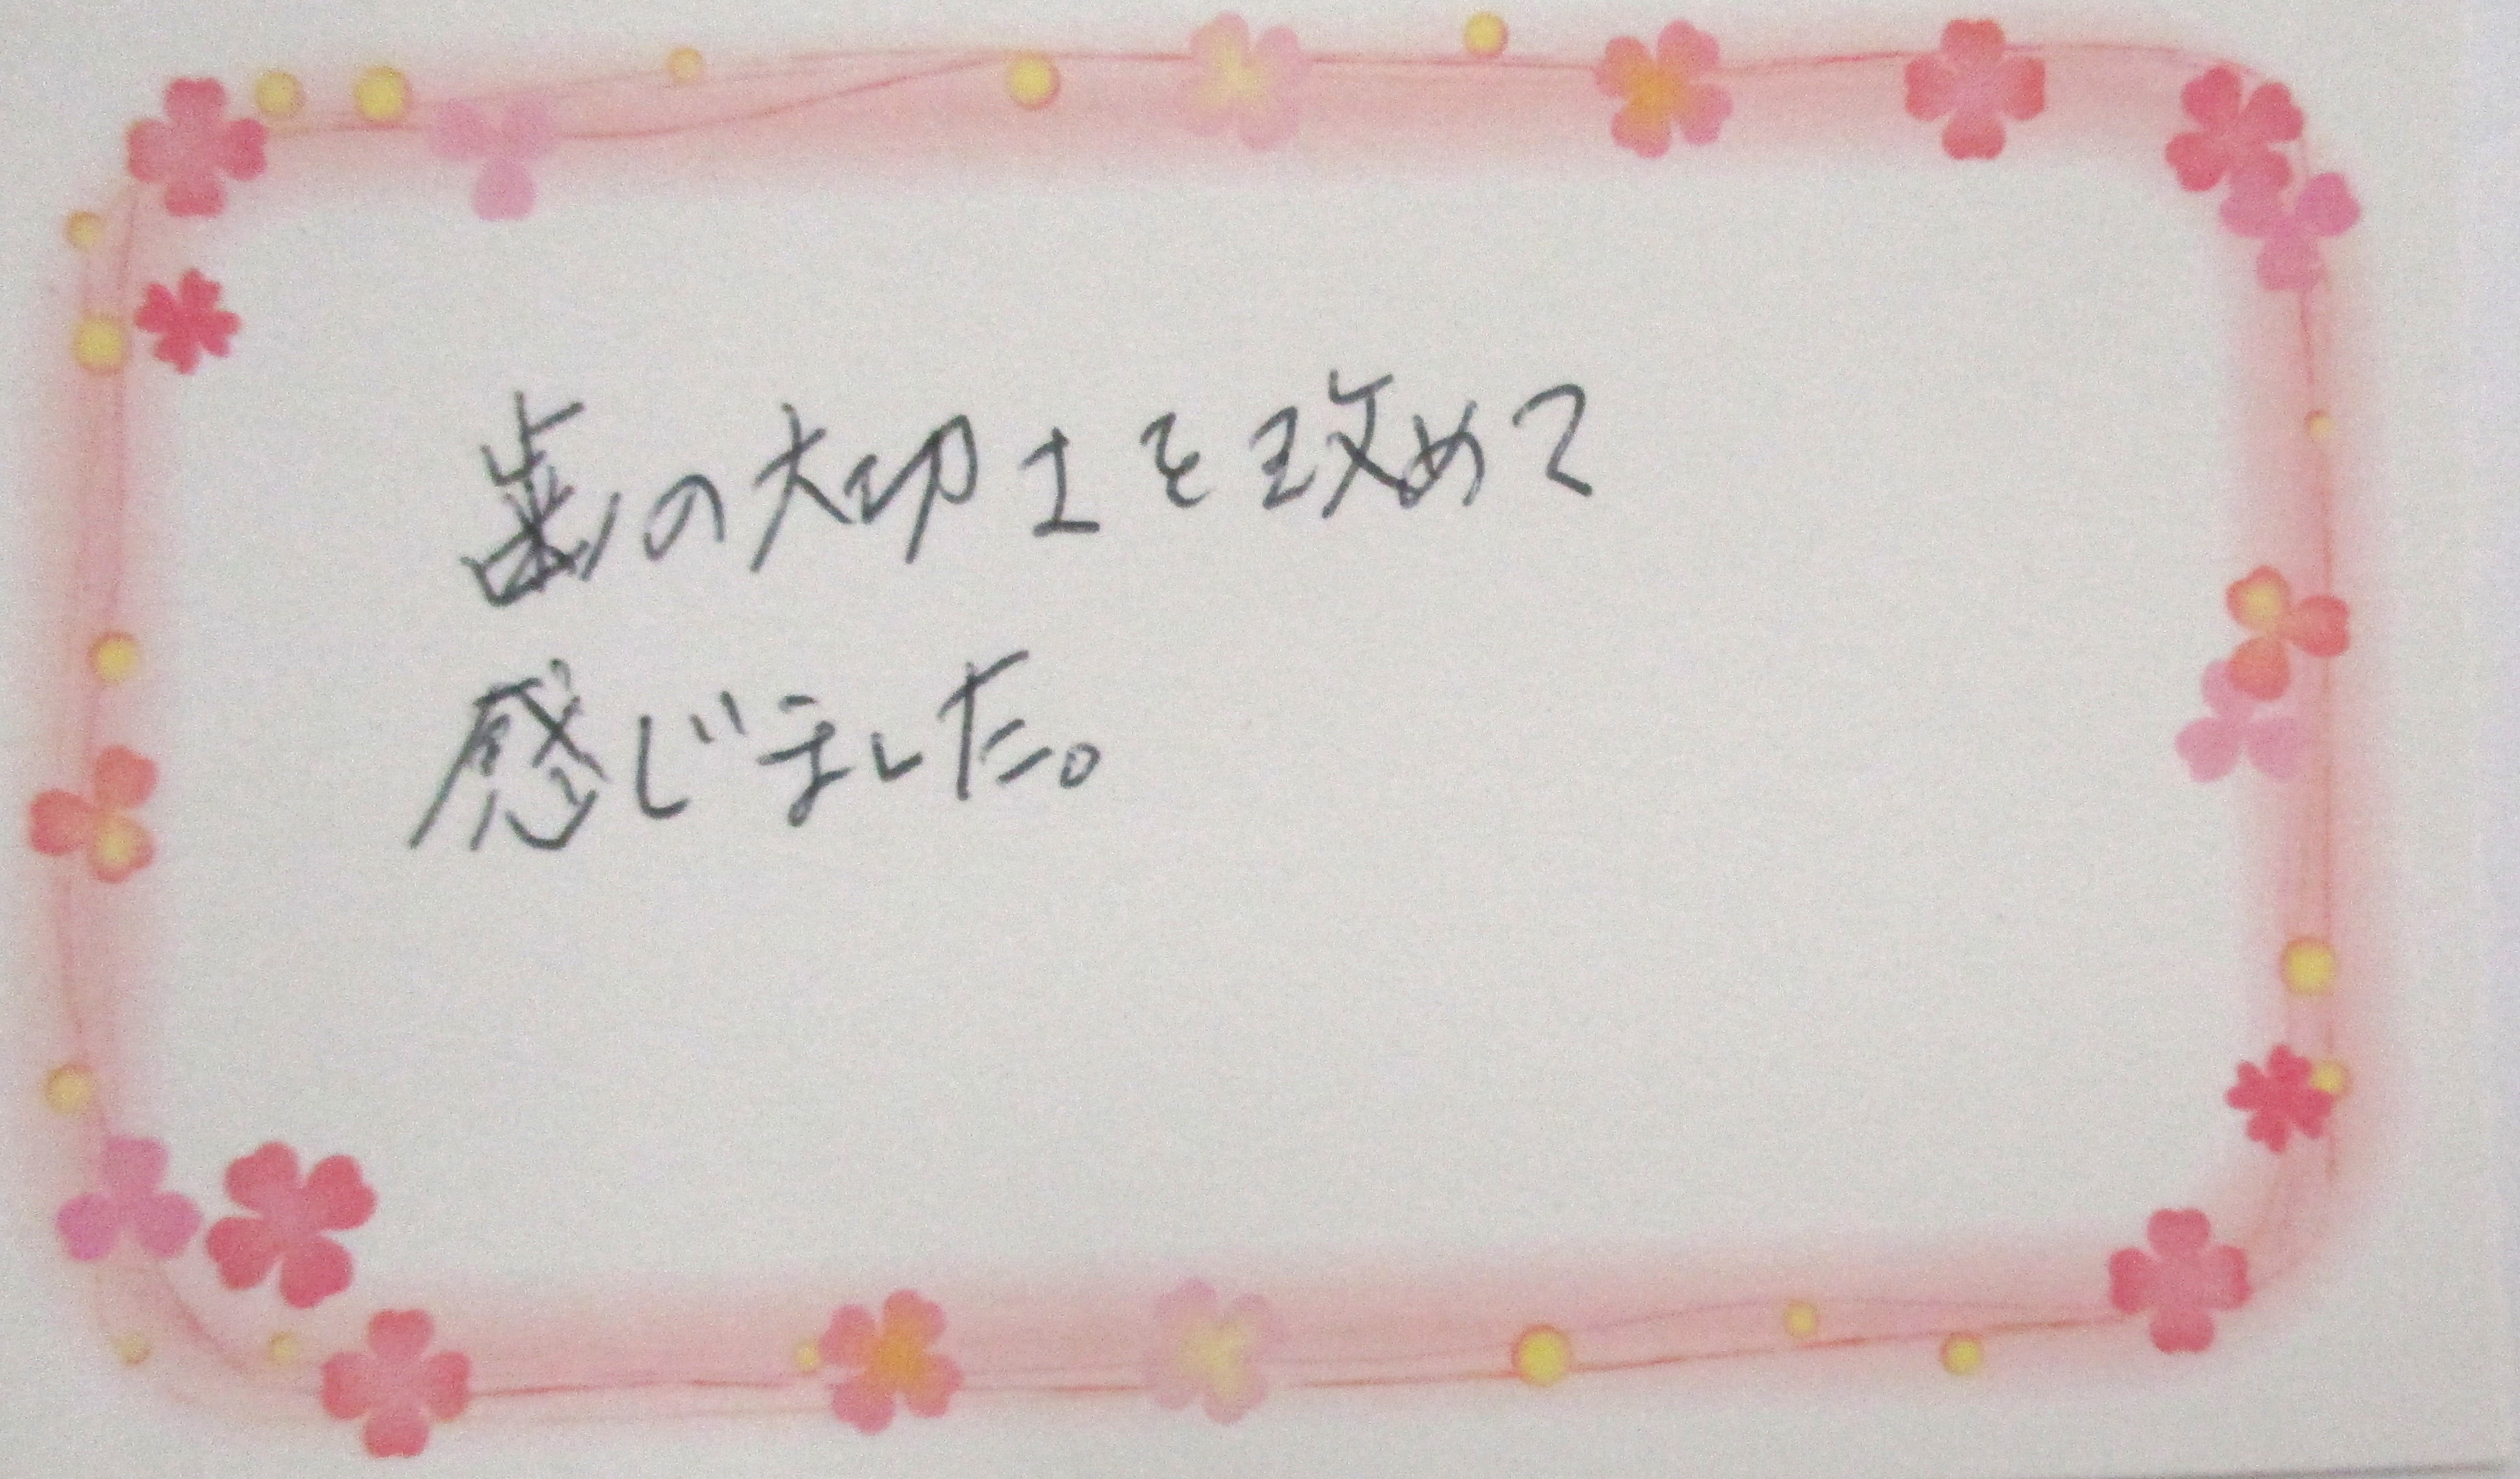 歯の大切さを改めて
感じました。